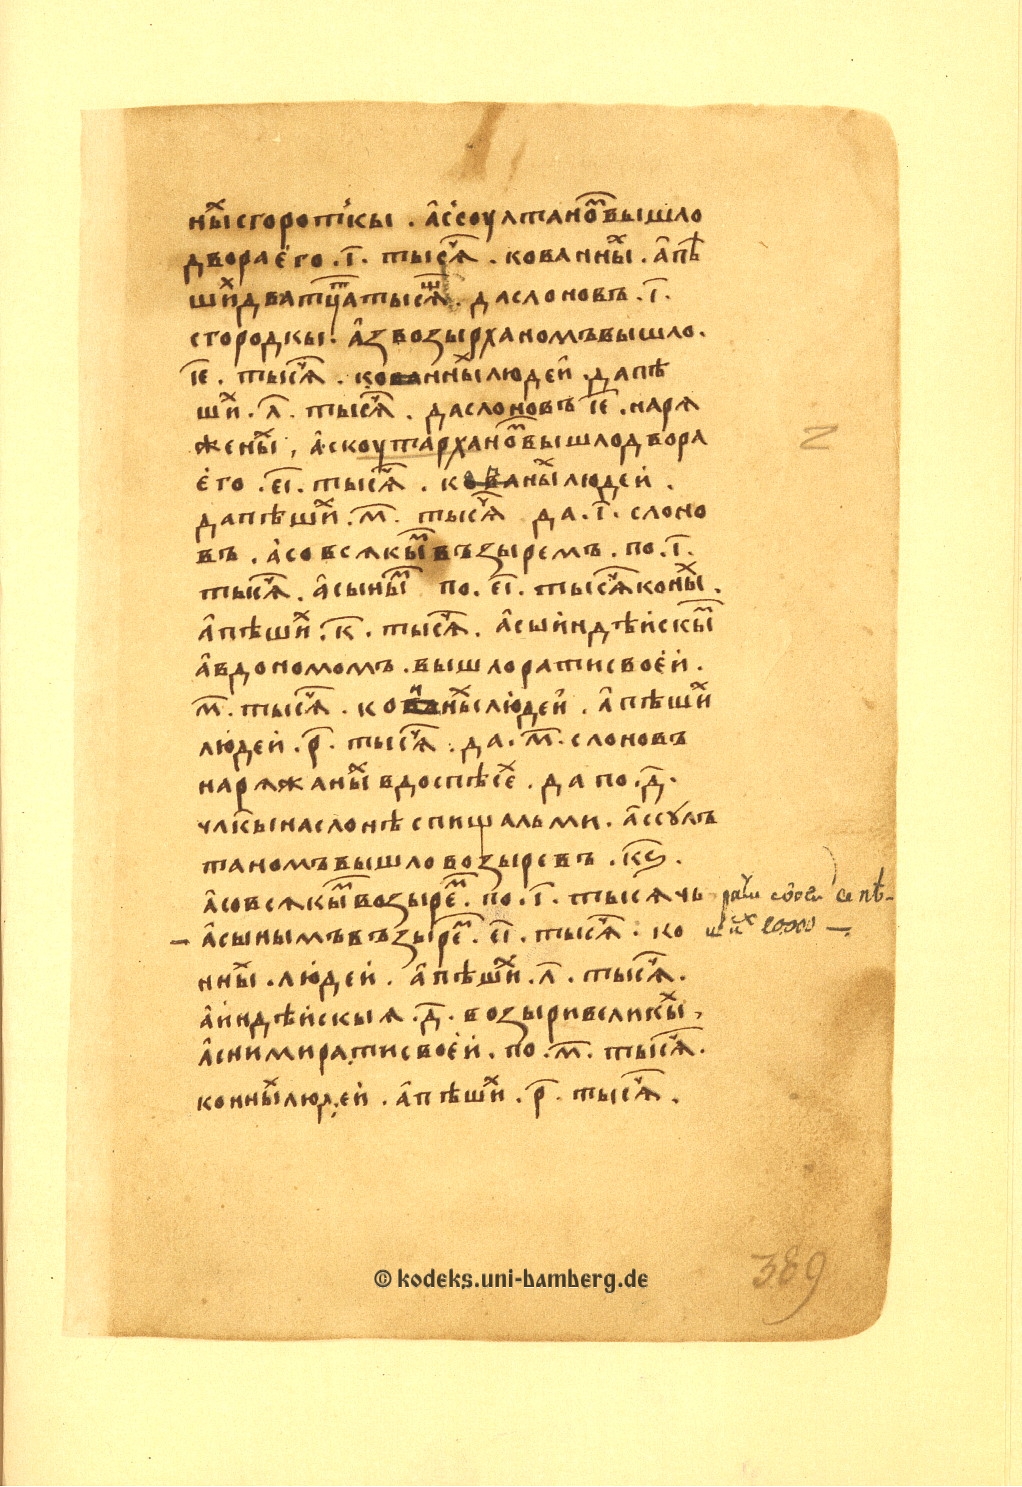 ны́хсгородкы . а҆ссоултано́мвышло
двораего . і҃ . тысѧч . кованных . а҆пѣ
шихдватцатътысѧч . даслоновъ . і҃ .
сгородкы . а҆звозырханомъвышло .
і҃е . тысѧч . кованныхлюдей . дапѣ
ших . л҃ . тысѧч . даслоновъ і҃е . нарѧ
женых , а҆скоутарханомвышлодвора
е҆го . е҃і . тысѧч . кованыхлюдей .
дапѣших . м҃ . тысѧч да . і҃ . слоно
въ . а҆совсѧкымвъзыремъ . по . і҃ .
тысѧч . а҆сыным по . е҃і . тысѧчконых .
а҆пѣших . к҃ . тысѧч . а҆сыйндѣйскым
а҆вдономомъ . вышлоратисвоей .
м҃ . тысѧч . конныхлюдей . а҆пѣших
людей . р҃ . тысѧч . да . м҃ . слоновъ
нарѧжаныхвдоспѣсех . да по . д҃ .
члкынаслонѣспищальми . а҆ссулъ
таномъвышловозыревъ . к҃ѕ .
а҆совсѧкымвозырем . по . і҃ . тысѧчь
а҆сынымъвъзырем . е҃і . тысѧч . ко
нных . людей . а҆пѣших . л҃ . тысѧч .
а҆йндѣйскыѧ . д҃ . возыривеликых ,
а҆снимиратисвоей . по . м҃ . тысѧч .
конныхлюдей . а҆пѣших . р҃ . тысѧч .
20.000
389
© kodeks.uni-bamberg.de